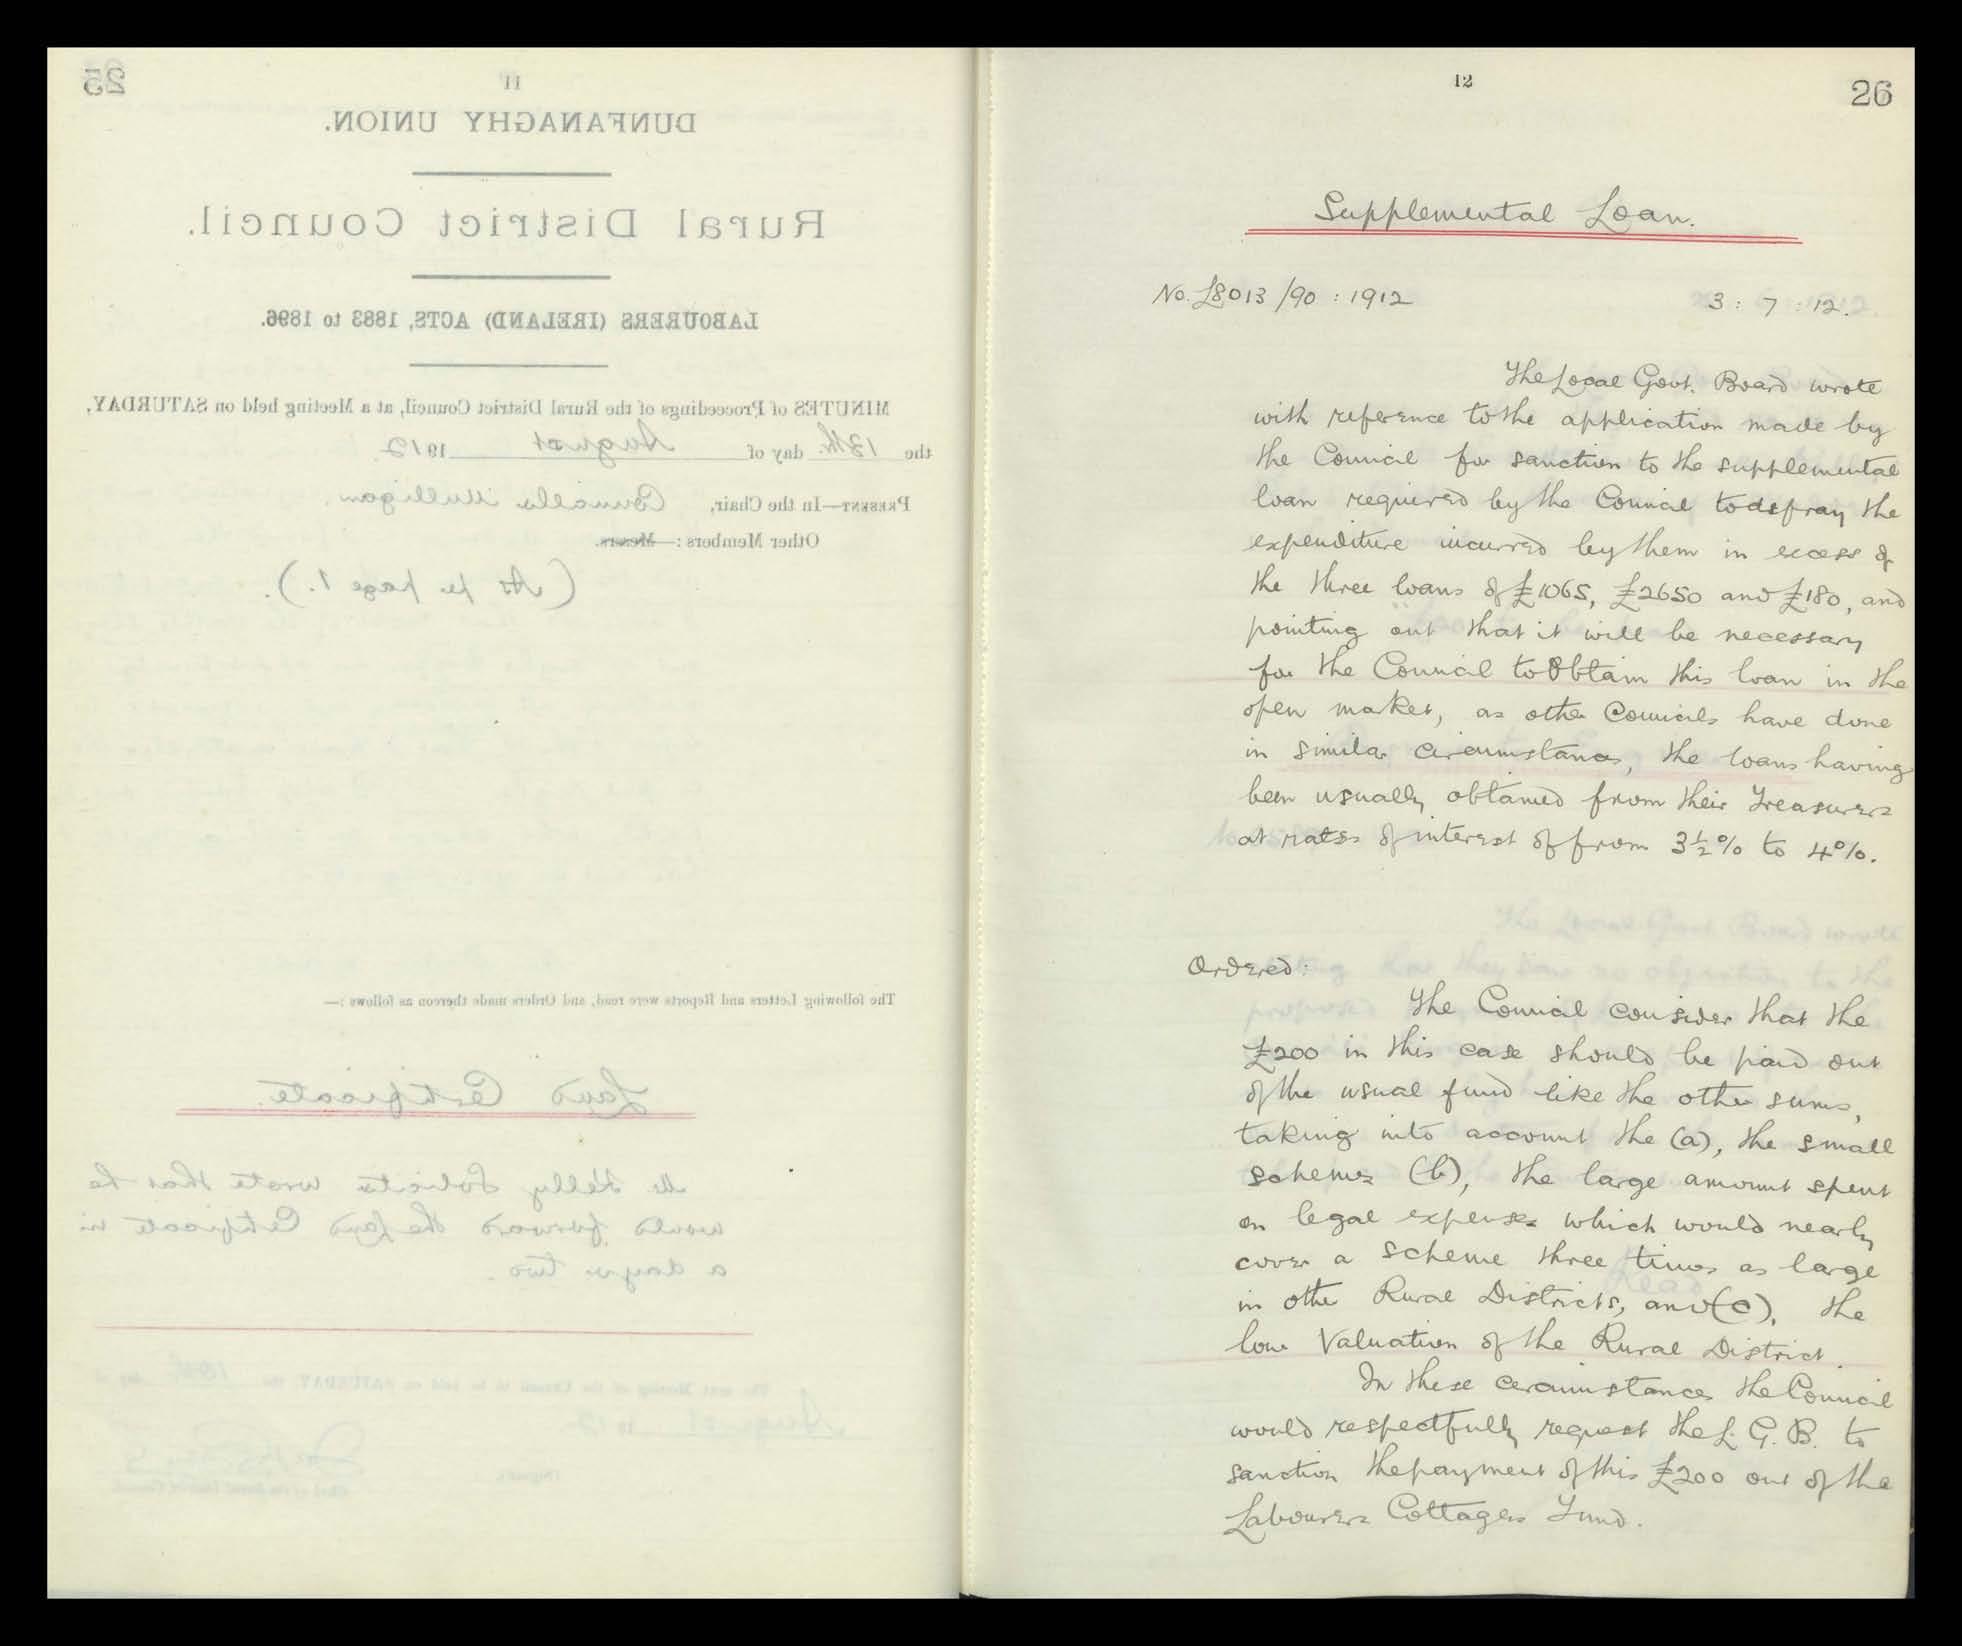 25
11
DUNFANAGHY UNION.
Rural District Council.
LABOURERS (IRELAND) ACTS, 1883 to 1896.
MINUTES of Proceedings of the Rural District Council, at a Meeting held on SATURDAY,
the 13th. day of August 1912.
PRESENT—In the Chair, Councillr Mulligan.
Other Members :—Messrs.
(As pr page 1.).
The following Letters and Reports were read, and Orders made thereon as follows :—
Land Certificate.
Mr Kelly Solicitor wrote that he
would forward the Land Certificate in
a day or two.
The next Meeting of the Council to be held on SATURDAY, the day of
August 1912
12
26
Supplemental Loan.
No. L8013/90 : 1912 3 : 7 : 12.
The Local Govt. Board wrote
with reference to the application made by
the Council for sanction to the supplemental
loan required by the Council to defray the
expenditure incurred by them in excess of
the three loans of £1065, £2650 and £180, and
pointing out that it will be necessary
for the Council to Obtain this loan in the
open market, as other Councils have done
in similar circumstances, the loans having
been usually obtained from their Treasurers
at rates of interest of from 3½% to 4%.
Ordered:
The Council consider that the
£200 in this case should be paid out
of the usual fund like the other sums,
taking into account the (a), the small
schemes (b), the large amount spent
on legal expenses which would nearly
cover a scheme three times as large
in other Rural Districts, and (c), the
low Valuation of the Rural District.
In these circumstances the Council
would respectfully request the L. G. B. to
sanction the payment of this £200 out of the
Labourers Cottages Fund.